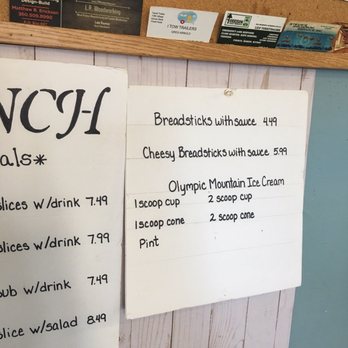 L.P. Woodworking
I TOW TRAILERS
NCH
als*
lices w/drink 7.49
lices w/drink 7.99
ub w/drink 7.49
lice w/salad 8.49
Breadsticks with sauce 4.49
Cheesy Breadsticks with sauce 5.99
Olympic Mountain Ice Cream
1 scoop cup 2 scoop cup
1 scoop cone 2 scoop cone
Pint